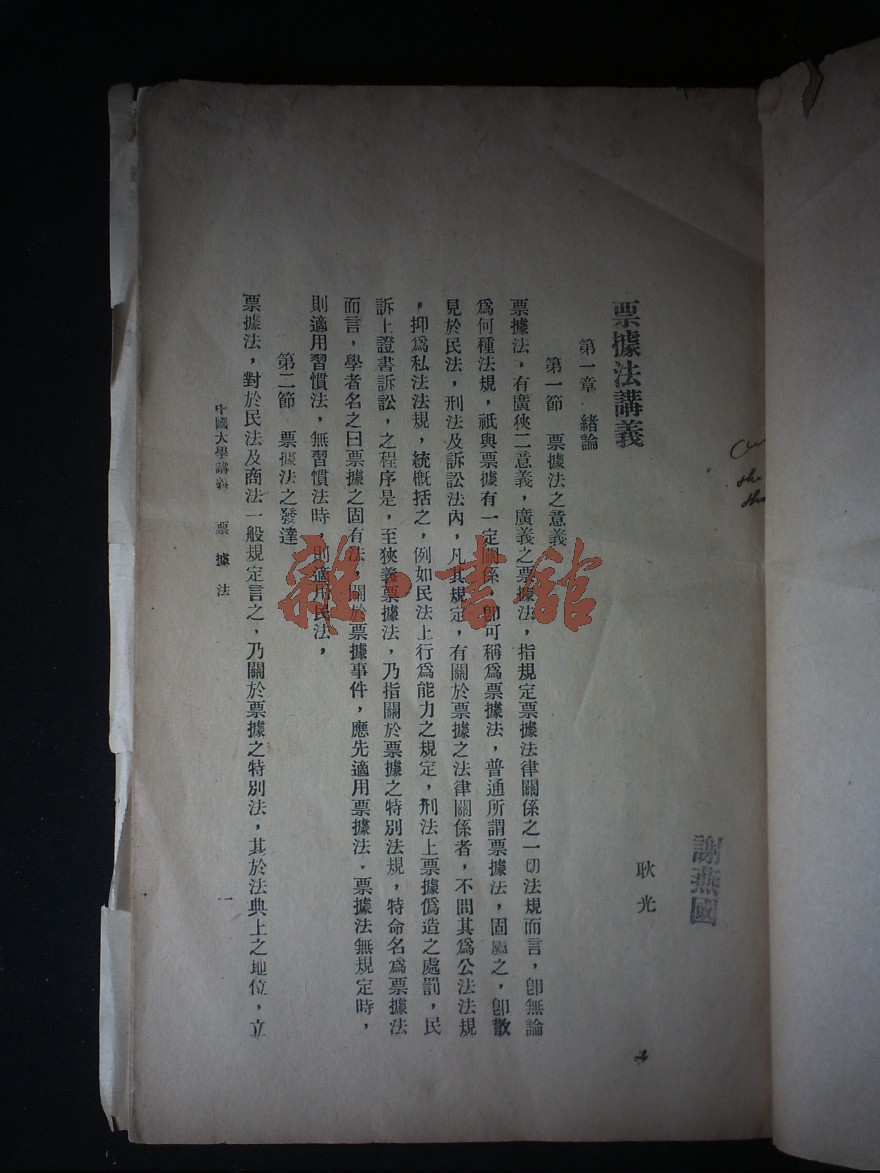 票據法講義
耿光
謝燕國
第一章 緒論
第一節 票據法之意義
票據法，有廣狹二意義，廣義之票據法，指規定票據法律關係之一切法規而言，卽無論
爲何種法規，祇與票據有一定關係，卽可稱爲票據法，普通所謂票據法，固屬之，卽散
見於民法，刑法及訴訟法內，凡其規定，有關於票據之法律關係者，不問其爲公法法規
，抑爲私法法規，統槪括之，例如民法上行爲能力之規定，刑法上票據僞造之處罰，民
訴上證書訴訟，之程序是，至狹義票據法，乃指關於票據之特別法規，特命名爲票據法
而言，學者名之曰票據之固有法，關於票據事件，應先適用票據法，票據法無規定時，
則適用習慣法，無習慣法時，則適用民法，
第二節 票據法之發達
票據法，對於民法及商法一般規定言之，乃關於票據之特別法，其於法典上之地位，立
中國大學講義 票據法 一
雜書館